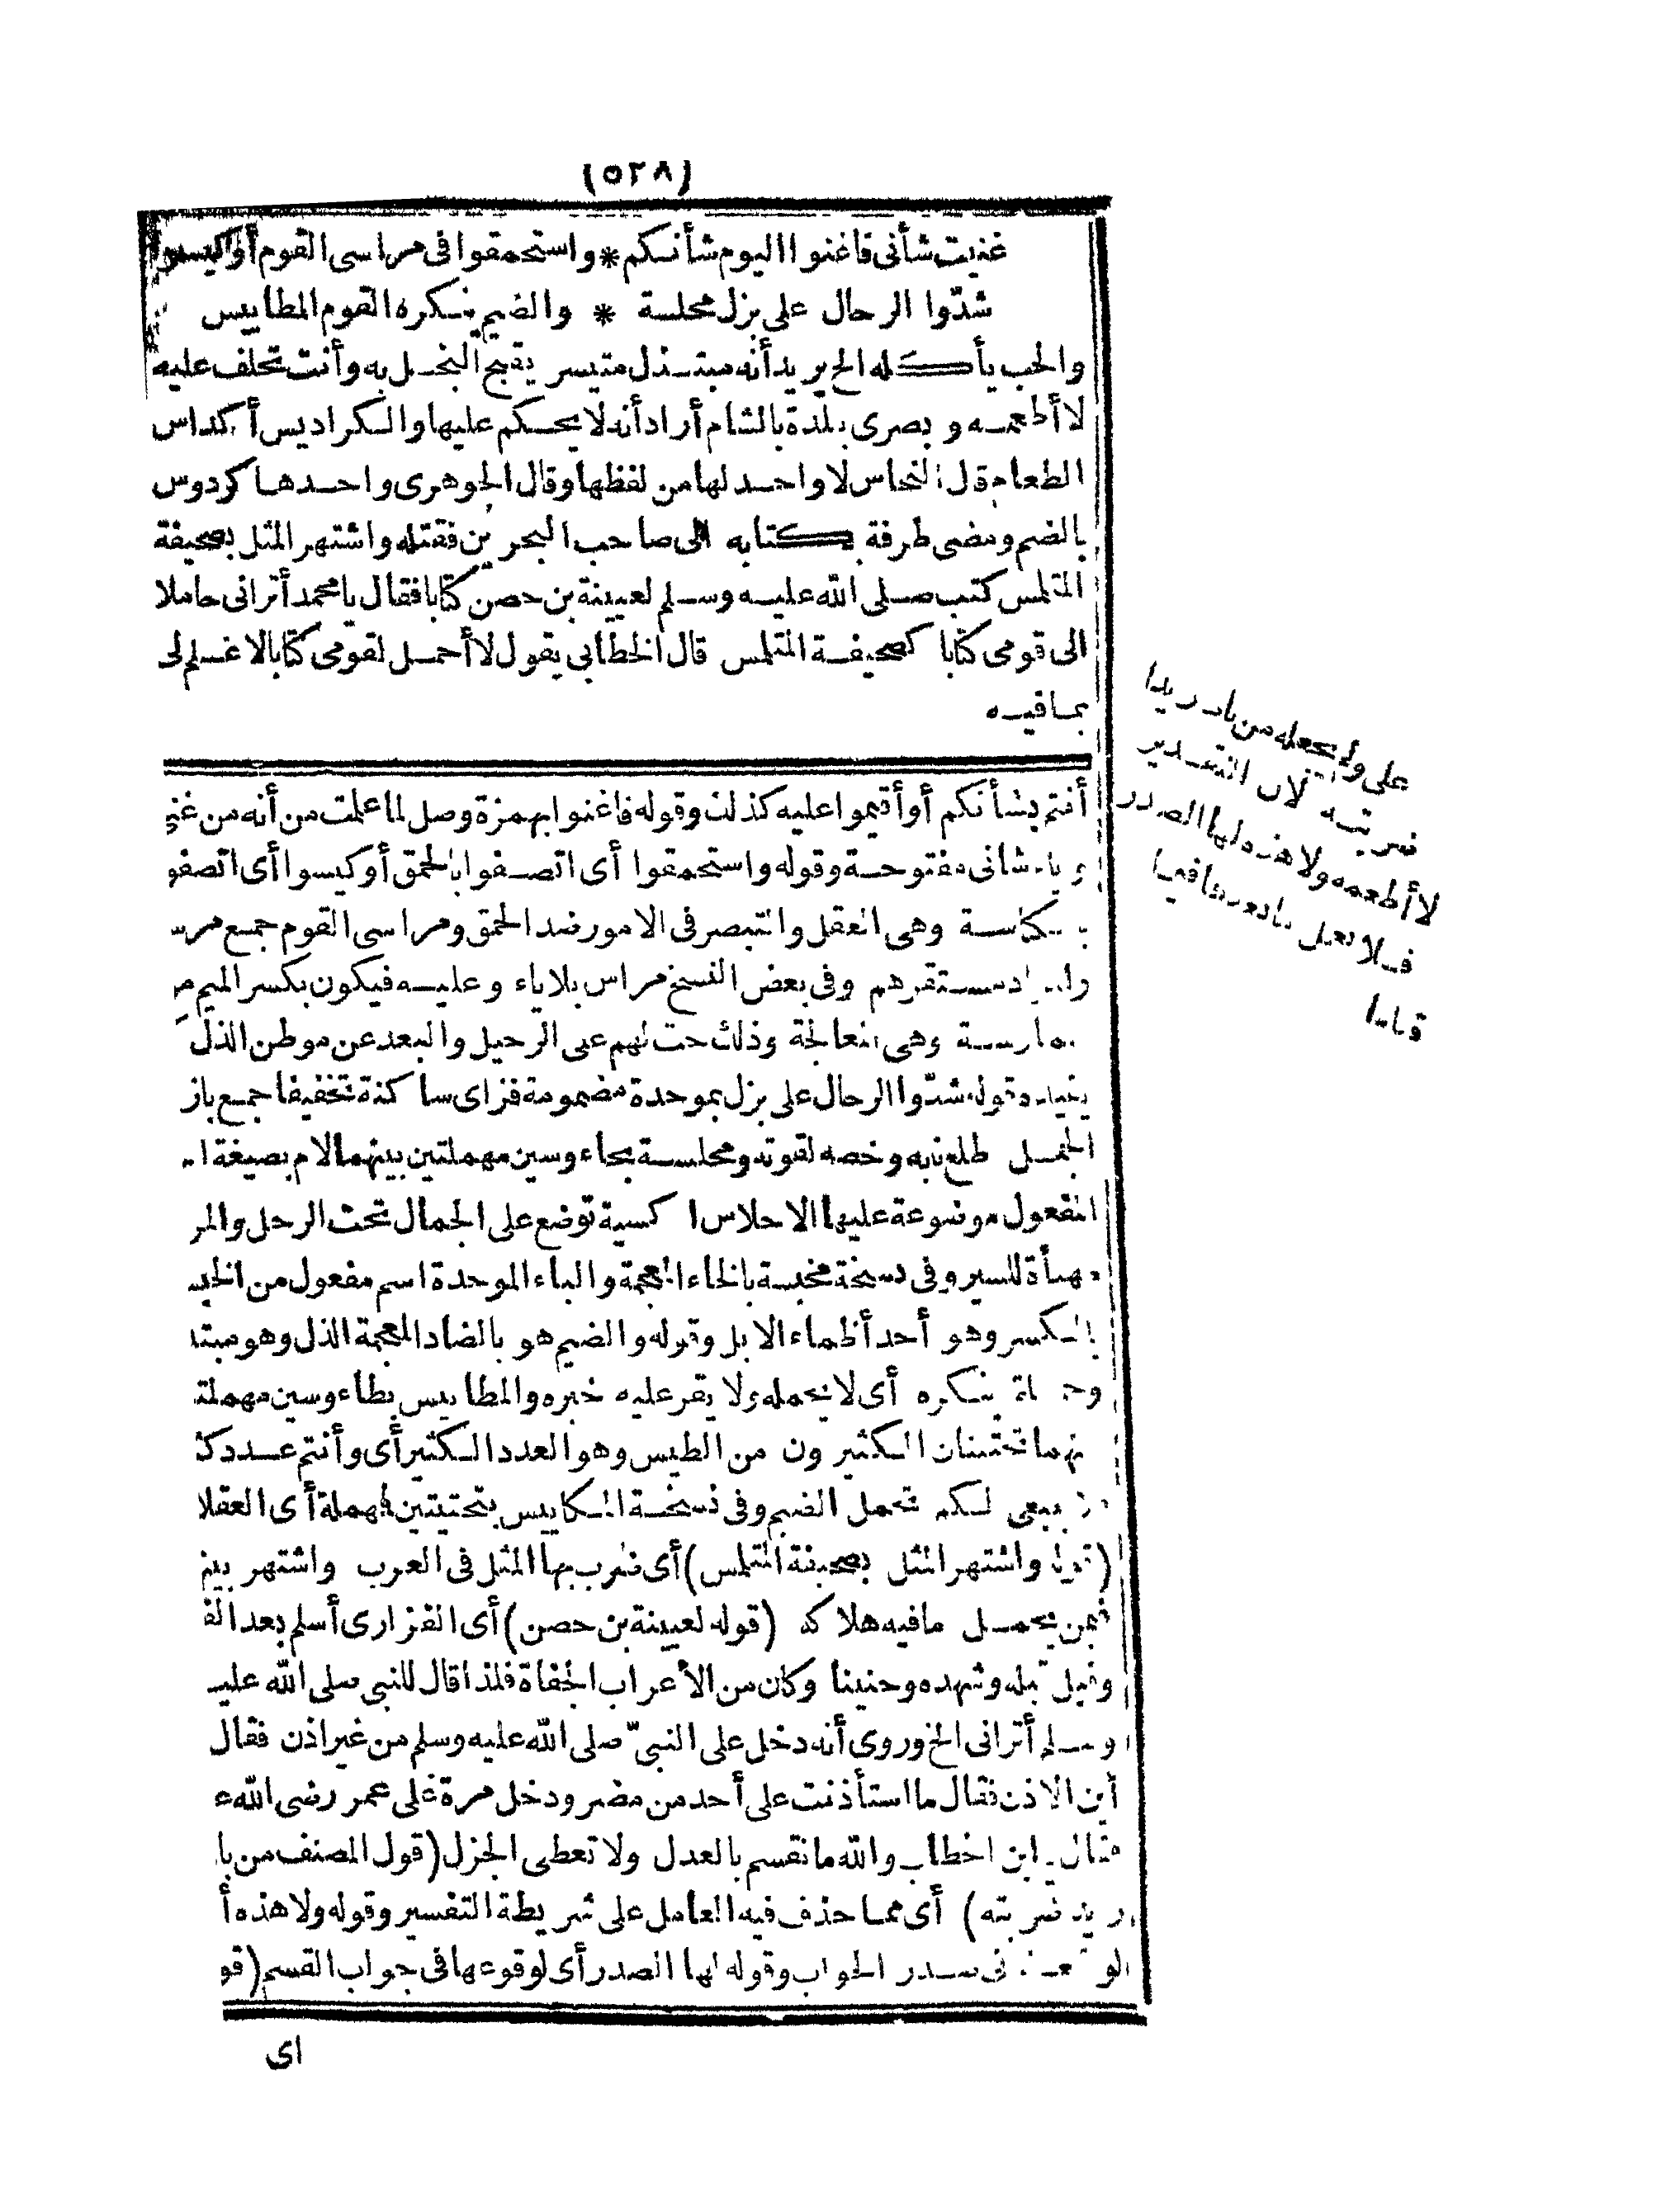 (٥٢٨)
غنيت شأنى فاغنوا اليوم شأنكم * واستحمقوا فى مراسى القوم أوكيسوا
شدّوا الرحال على بزل محلسة * والضيم ينكره القوم المطاييس
والحب يأكله الخ يريد أنه مبتذل متيسر يقبح البخل به وأنت تحلف عليه
لا أطعمه وبصرى بلدة بالشام أراد أنه لا يحكم عليها والكراديس أكداس
الطعام قال النحاس لا واحد لها من لفظها وقال الجوهرى واحدها كردوس
بالضم ومضى طرفة بكتابه الى صاحب البحرين فقتله واشتهر المثل بصحيفة
المتلمس كتب صلى الله عليه وسلم لعيينة بن حصن كتابا فقال يا محمد أترانى حاملا
الى قومى كتابا كصحيفة المتلمس قال الخطابى يقول لا أحمل لقومى كتابا لا علم لى
بما فيه
على ولم يجعله من باب زيدا
ضربته لان التقدير
لا أطعمه ولا هذه لها الصدر
فلا يعمل ما بعدها فيما
قبلها
أنتم بشأنكم أو أقيموا عليه كذلك وقوله فاغنوا بهمزة وصل لما علمت من أنه من غنى
وياء شانى مفتوحة وقوله واستحمقوا أى اتصفوا بالحمق أوكيسوا أى اتصفو
وهى العقل والتبصر فى الامور ضد الحمق ومراسى القوم جمع مرس
مستقرهم وفى بعض النسخ مراس بلا ياء وعليه فيكون بكسر الميم
وهى المعالجة وذلك حث لهم على الرحيل والبعد عن موطن الذل
وقوله شدّوا الرحال على بزل بموحدة مضمومة فزاى ساكنة تخفيفا جمع باز
الجمل طلع نابه وخصه لقوته ومحلسة بحاء وسين مهملتين بينهما لام بصيغة ا
المفعول موضوعة عليها الاحلاس اكسية توضع على الجمال تحت الرحل والمر
مهيأة للسير وفى نسخة مخبسة بالخاء المعجمة والباء الموحدة اسم مفعول من الخب
بالكسر وهو أحد أظماء الابل وقوله والضيم هو بالضاد المعجمة الذل وهو مبتد
ينكره أى لا يحمله ولا يقر عليه خبره والمطاييس بطاء وسين مهملت
تحتيتان الكثيرون من الطيس وهو العدد الكثير أى وأنتم عدد كث
لكم تحمل الضيم وفى نسخة المكاييس بتحتيتين فمهملة أى العقلا
(قوله واشتهر المثل بصحيفة المتلمس) أى ضرب بها المثل فى العرب واشتهر بينه
فيمن يحمل ما فيه هلاكه (قوله لعيينة بن حصن) أى الفزارى أسلم بعد الف
وقيل قبله وشهده وحنينا وكان من الأعراب الجفاة فلذا قال للنبى صلى الله عليه
وسلم أترانى الخ وروى أنه دخل على النبىّ صلى الله عليه وسلم من غير اذن فقال
أين الاذن فقال ما استأذنت على أحد من مضر ودخل مرة على عمر رضى الله ع
فقال يا ابن الخطاب والله ما تقسم بالعدل ولا تعطى الجزل (قول المصنف من با
زيد ضربته) أى مما حذف فيه العامل على شريطة التفسير وقوله ولا هذه أ
فى صدر الجواب وقوله لها الصدر أى لوقوعها فى جواب القسم (قو
اى